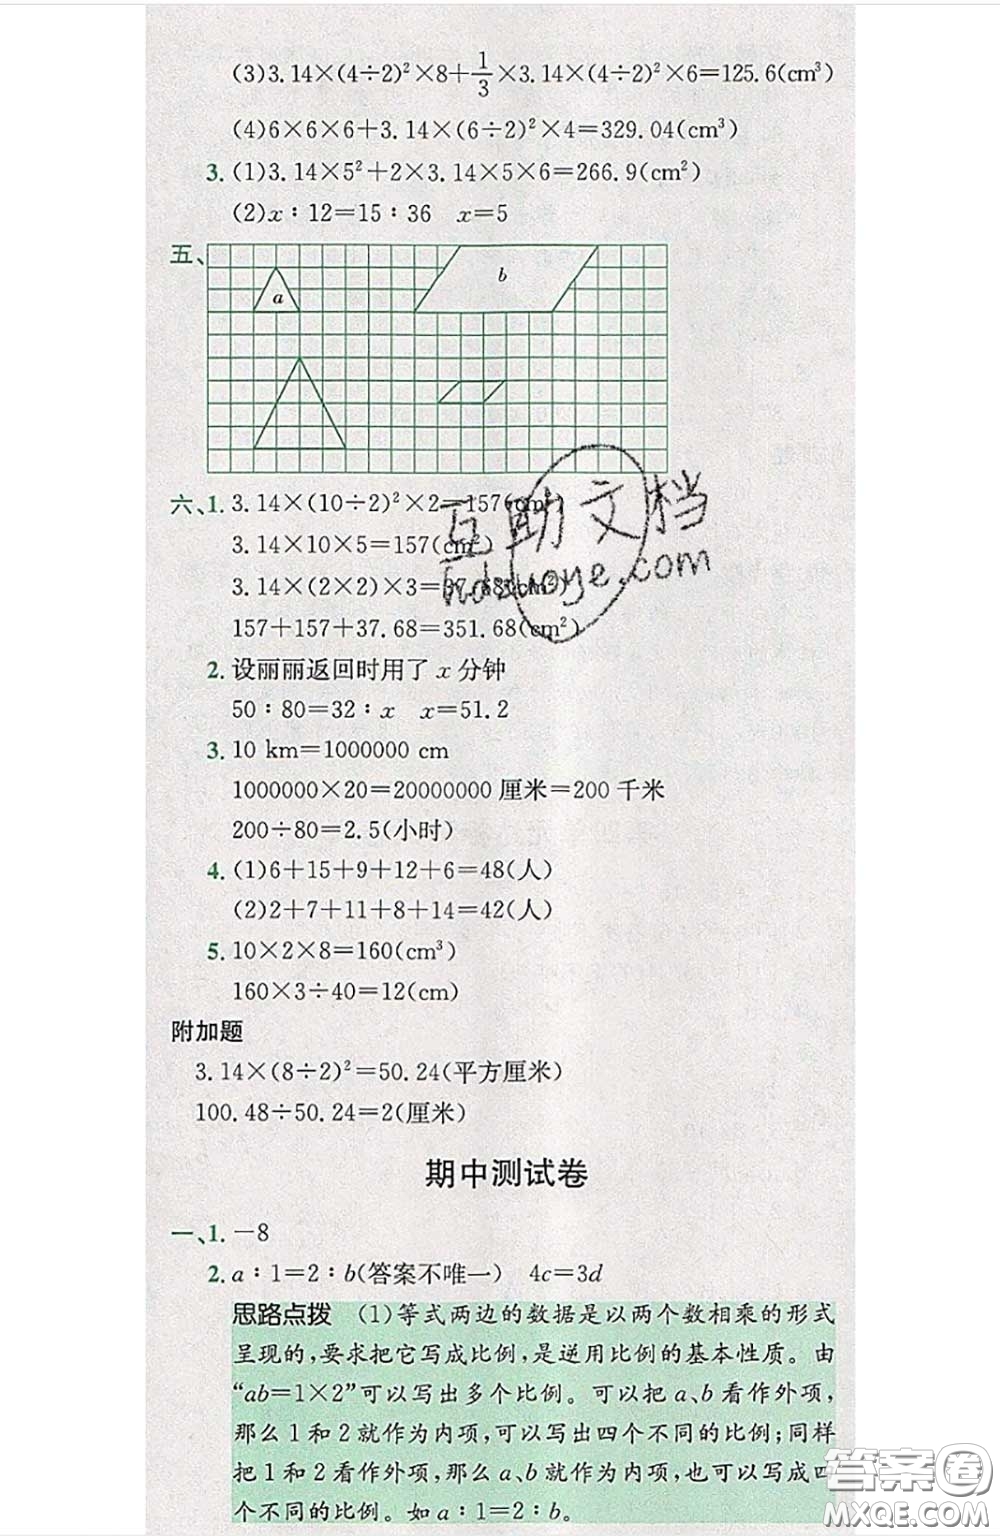 (3)3.14×(4÷2)²×8+1/3×3.14×(4÷2)²×6=125.6(cm³)
(4)6×6×6+3.14×(6÷2)²×4=329.04(cm³)
3. (1)3.14×5²+2×3.14×5×6=266.9(cm²)
(2)x∶12=15∶36 x=5
五、
a
b
六、1. 3.14×(10÷2)²×2=157(cm²)
3.14×10×5=157(cm²)
3.14×(2×2)×3=37.68(cm²)
157+157+37.68=351.68(cm²)
互助文档
hdzuoye.com
2. 设丽丽返回时用了 x 分钟
50∶80=32∶x x=51.2
3. 10 km=1000000 cm
1000000×20=20000000 厘米=200 千米
200÷80=2.5(小时)
4. (1)6+15+9+12+6=48(人)
(2)2+7+11+8+14=42(人)
5. 10×2×8=160(cm³)
160×3÷40=12(cm)
附加题
3.14×(8÷2)²=50.24(平方厘米)
100.48÷50.24=2(厘米)
期中测试卷
一、1. －8
2. a∶1=2∶b(答案不唯一) 4c=3d
思路点拨 (1)等式两边的数据是以两个数相乘的形式
呈现的,要求把它写成比例,是逆用比例的基本性质。由
“ab=1×2”可以写出多个比例。可以把 a、b 看作外项,
那么 1 和 2 就作为内项,可以写出四个不同的比例;同样
把 1 和 2 看作外项,那么 a、b 就作为内项,也可以写成四
个不同的比例。如 a∶1=2∶b。
答案圈
MXQE.COM